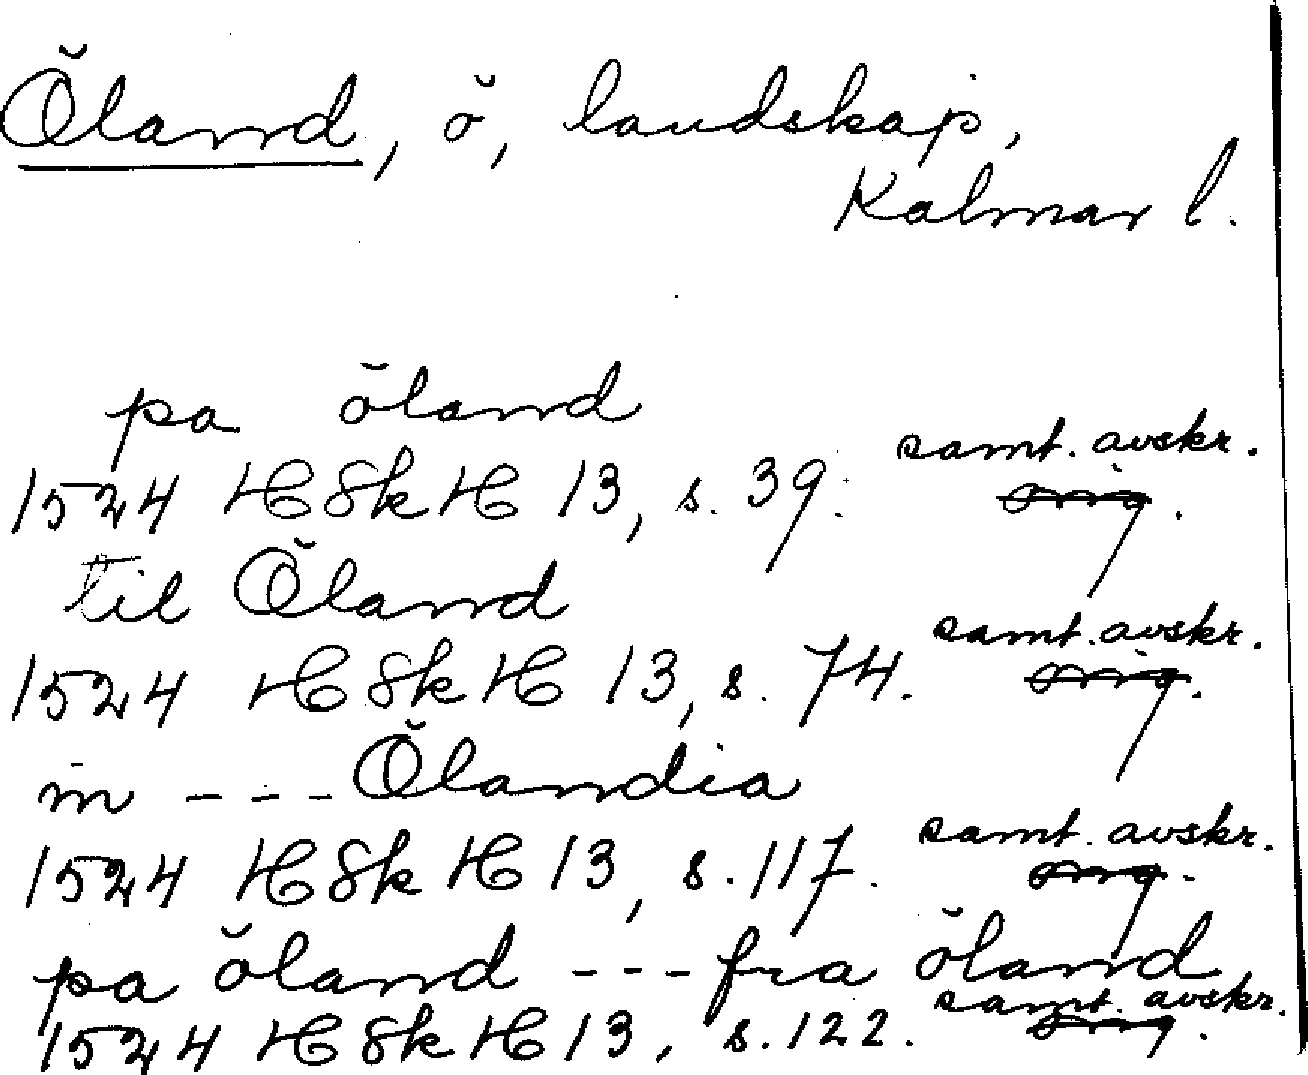 Öland, ö, landskap,
Kalmar l.
pa öland
samt. avskr.
1524 HSkH 13, s. 39. orig.
til Öland
samt. avskr.
1524 HSkH 13, s. 74. orig.
in --- Ölandia
samt. avskr.
1524 HSkH 13, s. 117. orig.
pa öland --- fra öland
samt. avskr.
1524 HSkH 13, s. 122. orig.